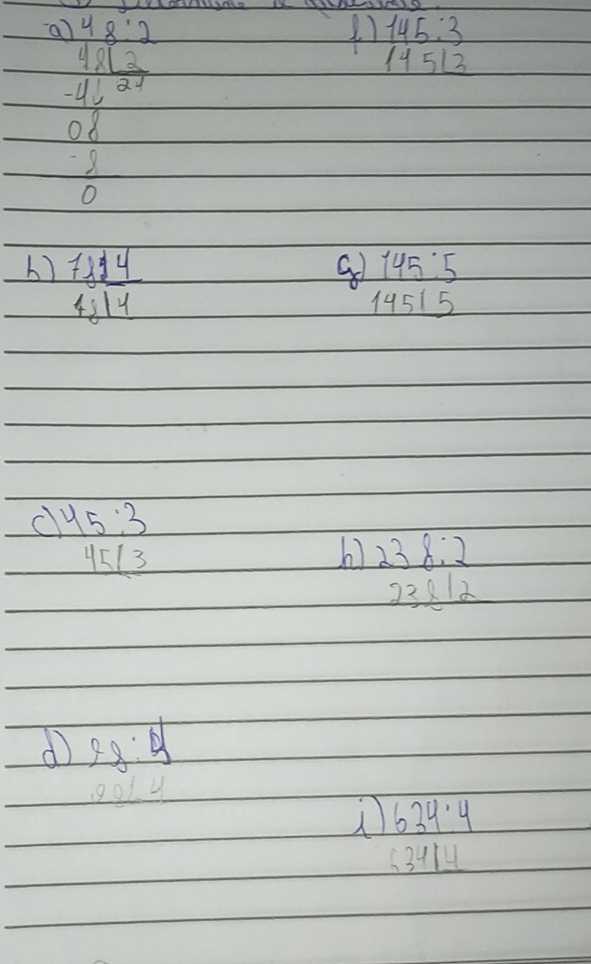 a) 48:2
48|2
-4↓ 24
08
-8
0
b) 78:4
78|4
c) 45:3
45|3
d) 98:4
98|4
f) 145:3
145|3
g) 145:5
145|5
h) 238:2
238|2
i) 634:4
634|4